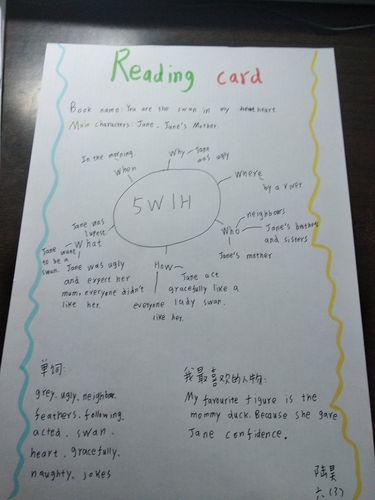 Reading card
Book name: You are the swan in my heart.
Main characters: Jane. Jane's Mother.
In the morning.
When
Why Jane was ugly
Where
by a river.
5W1H
neighbours
Who
Jane's brothers
and sisters
Jane's mother
Jane was
What
Jane want
to be a
swan.
Jane was ugly
and expect her
mum, everyone didn't
like her.
How
Jane act
gracefully like a
lady swan.
everyone
like her.
单词:
grey. ugly. neighbor.
feathers. following.
acted. swan.
heart. gracefully.
naughty. jokes
我最喜欢的人物:
My favourite figure is the
mommy duck. Because she gave
Jane confidence.
陆昊
六(3)